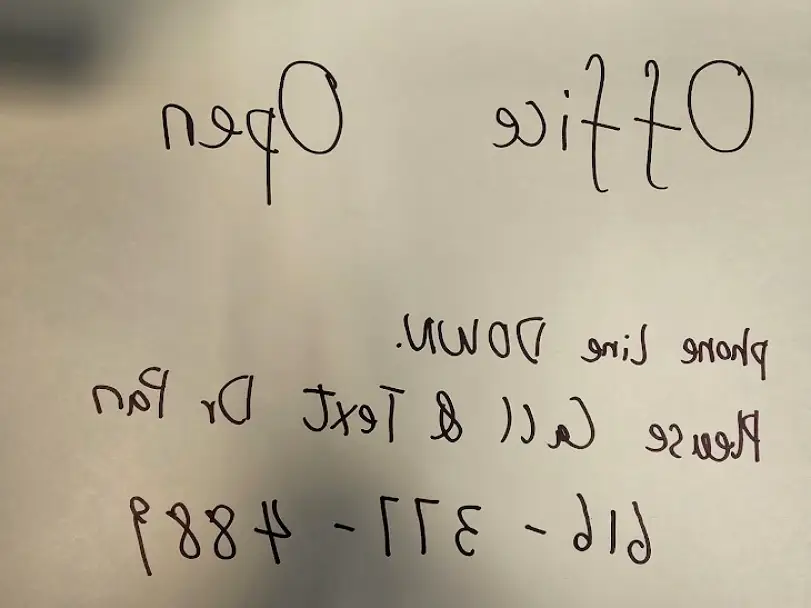 Office Open
phone line DOWN.
Please Call & Text Dr Pan
616-377-4889